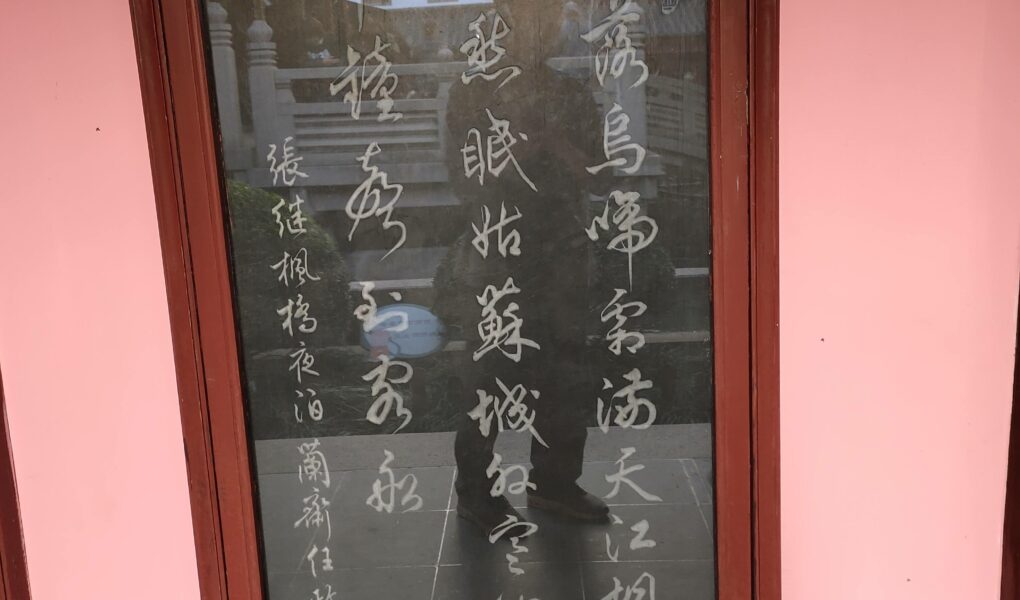 落烏啼霜滿天江
愁眠姑蘇城外寒
鐘聲到客船
張继楓橋夜泊蘭齋任